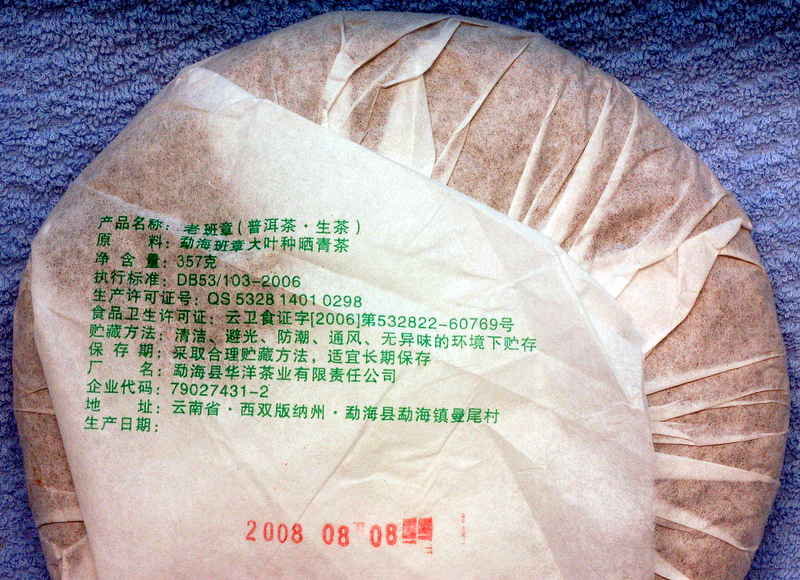 产品名称: 老班章(普洱茶·生茶)
原 料: 勐海班章大叶种晒青茶
净 含 量: 357克
执行标准: DB53/103-2006
生产许可证号: QS 5328 1401 0298
食品卫生许可证: 云卫食证字[2006]第532822-60769号
贮藏方法: 清洁、避光、防潮、通风、无异味的环境下贮存
保 存 期: 采取合理贮藏方法，适宜长期保存
厂 名: 勐海县华洋茶业有限责任公司
企业代码: 79027431-2
地 址: 云南省·西双版纳州·勐海县勐海镇曼尾村
生产日期:
2008 08 08